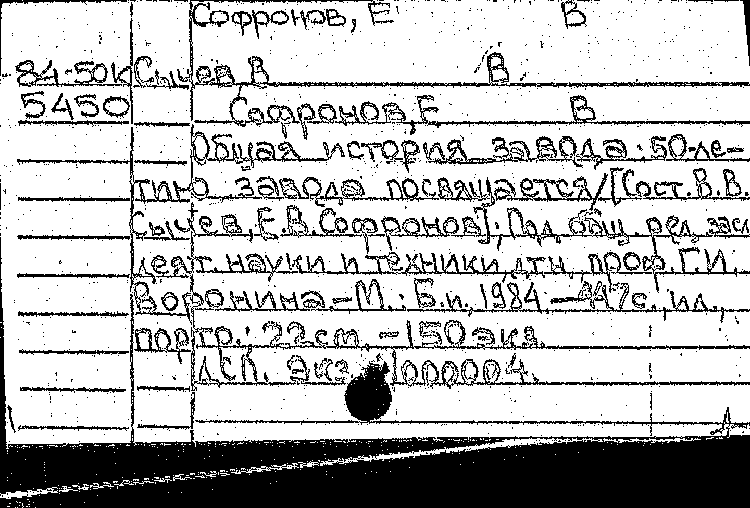 Софронов, Е В
84-50к Сычев В В
5450 Софронов, Е В
Общая история завода: 50-ле-
тию завода посвящается/[Сост. В.В.
Сычев, Е.В. Софронов]; Под общ. ред. засл
деят. науки и техники дтн, проф. Г.И.
Воронина.-М.: Б.и, 1984.-447с., ил.,
портр.; 22см. -150экз.
ДСП. Экз. 000004.